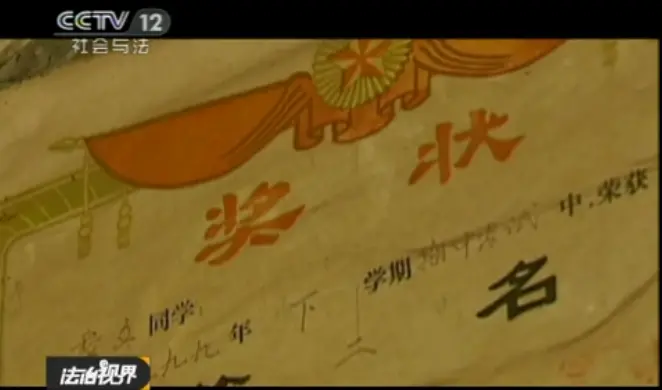 CCTV 12
社会与法
奖状
同学:
九九年下学期期中考试中,荣获
二名
法治视界